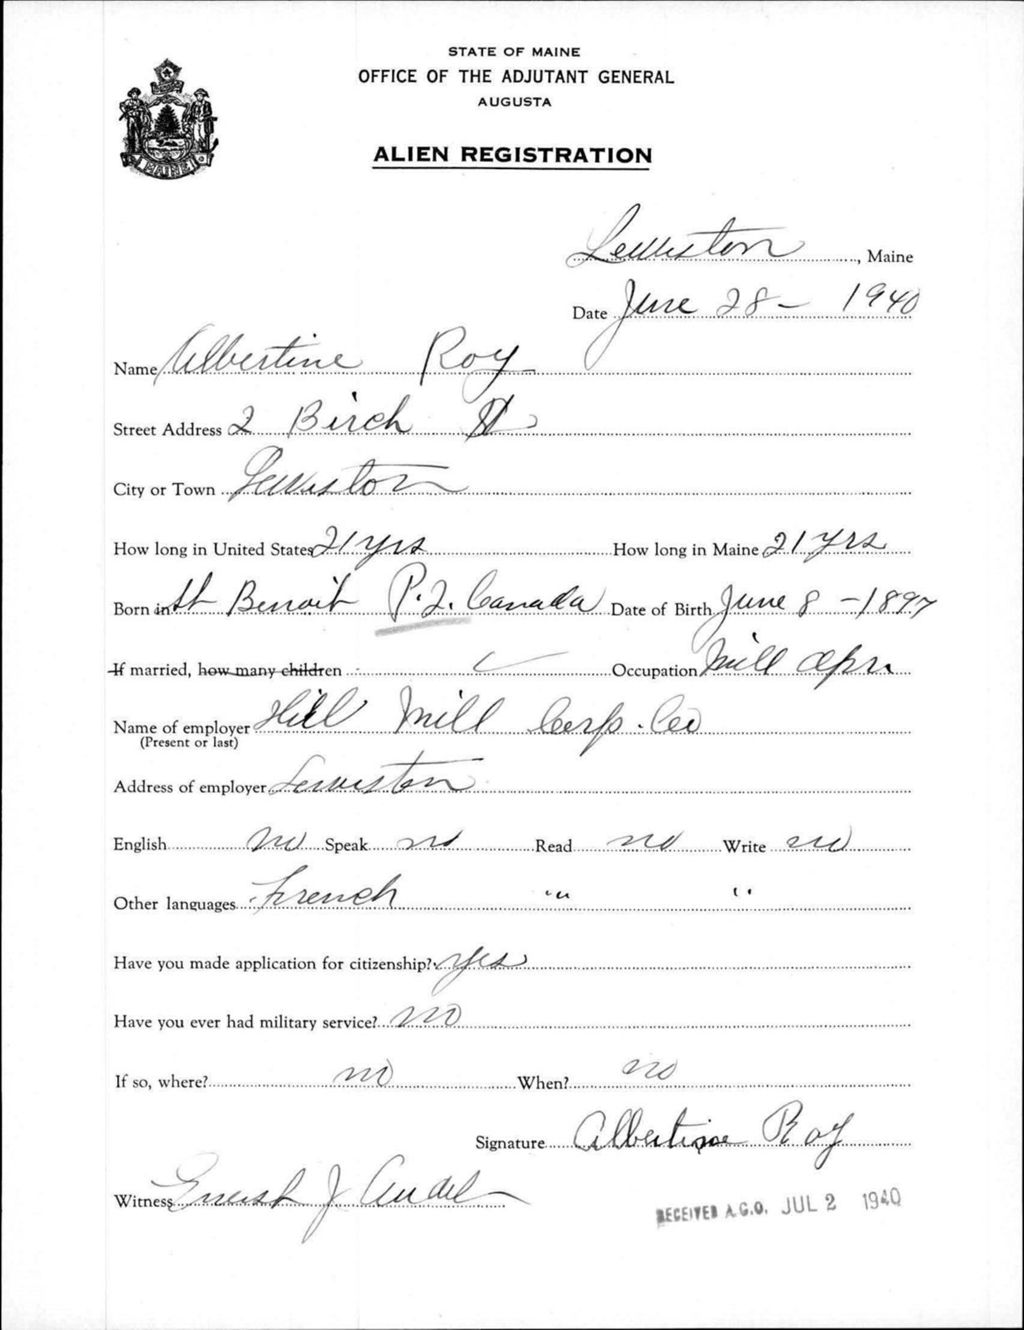 STATE OF MAINE
OFFICE OF THE ADJUTANT GENERAL
AUGUSTA
ALIEN REGISTRATION
MAINE
Lewiston, Maine
Date June 28 - 1940
Name Albertine Roy
Street Address 2 Birch St
City or Town Lewiston
How long in United States 21 yrs How long in Maine 21 yrs
Born in St Benoit P.Q. Canada Date of Birth June 8 - 1897
If married, how many children Occupation Mill Opr.
Name of employer Hill Mill Corp. Co
(Present or last)
Address of employer Lewiston
English no Speak no Read no Write no
Other languages French " "
Have you made application for citizenship? yes
Have you ever had military service? no
If so, where? no When? no
Signature Albertine Roy
Witness J
RECEIVED A.G.O. JUL 2 1940